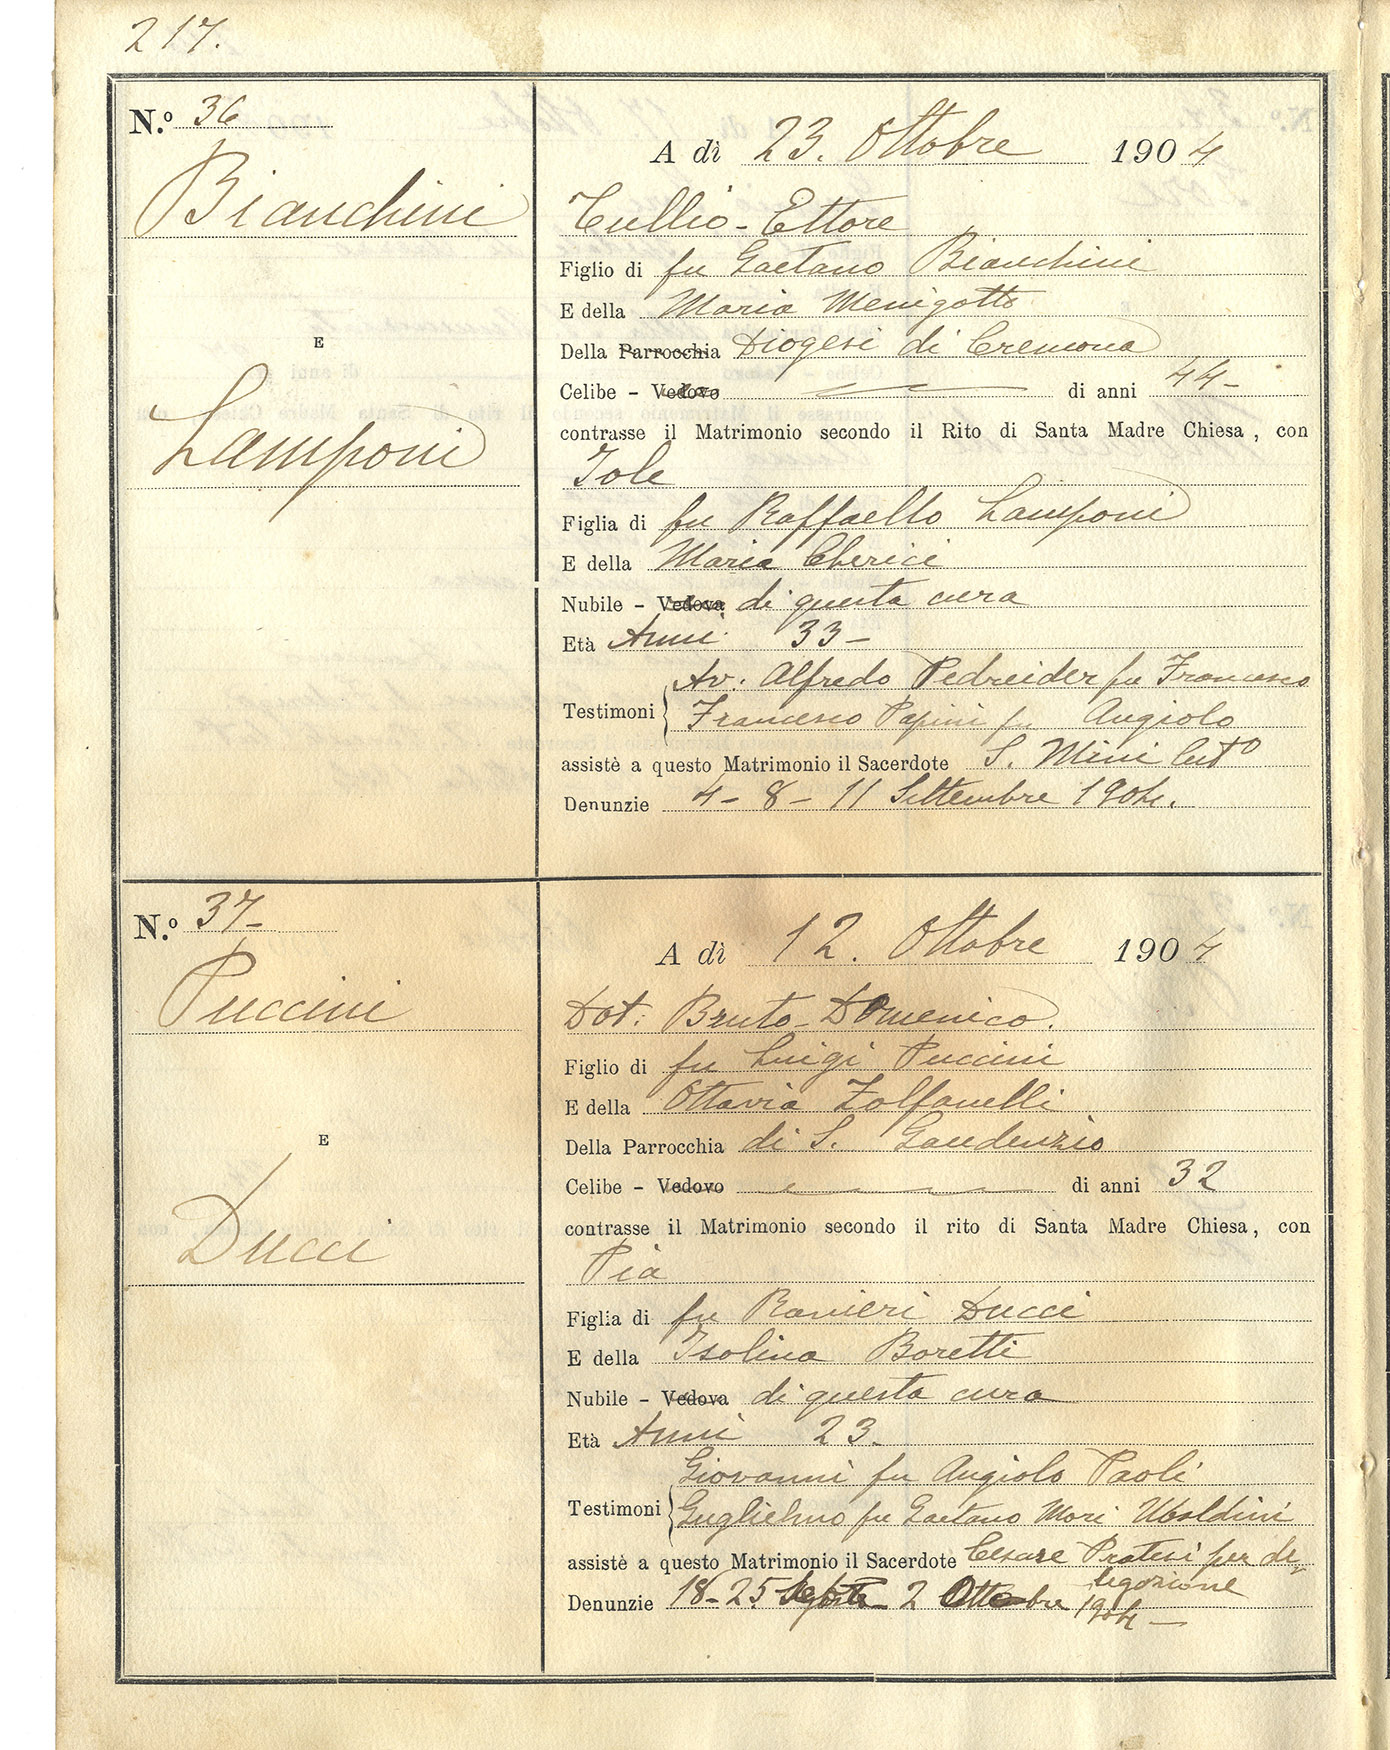 217.
N.º 36
Bianchini
E
Lamponi
A dì 23. Ottobre 1904
Tullio - Ettore
Figlio di fu Gaetano Bianchini
E della Maria Menigotto
Della Parrocchia Diogesi di Cremona
Celibe - Vedovo di anni 44 -
contrasse il Matrimonio secondo il Rito di Santa Madre Chiesa, con
Iole
Figlia di fu Raffaello Lamponi
E della Maria Cherici
Nubile - Vedova di questa cura
Età Anni 33 -
Av. Alfredo Pedreider fu Francesco
Testimoni Francesco Papini fu Angiolo
assistè a questo Matrimonio il Sacerdote S. Mini
Denunzie 4 - 8 - 11 Settembre 1904.
N.º 37 -
Puccini
E
Ducci
A dì 12. Ottobre 1904
Dot: Bruto - Domenico.
Figlio di fu Luigi Puccini
E della Ottavia Zolfanelli
Della Parrocchia di S. Gaudenzio
Celibe - Vedovo di anni 32
contrasse il Matrimonio secondo il rito di Santa Madre Chiesa, con
Pia
Figlia di fu Ranieri Ducci
E della Isolina Boretti
Nubile - Vedova di questa cura
Età Anni 23.
Giovanni fu Angiolo Paoli
Testimoni Guglielmo fu Gaetano Mori Ubaldini
assistè a questo Matrimonio il Sacerdote Cesare Pratesi per de-
legazione
Denunzie 18 - 25 2 Ottobre 1904 -